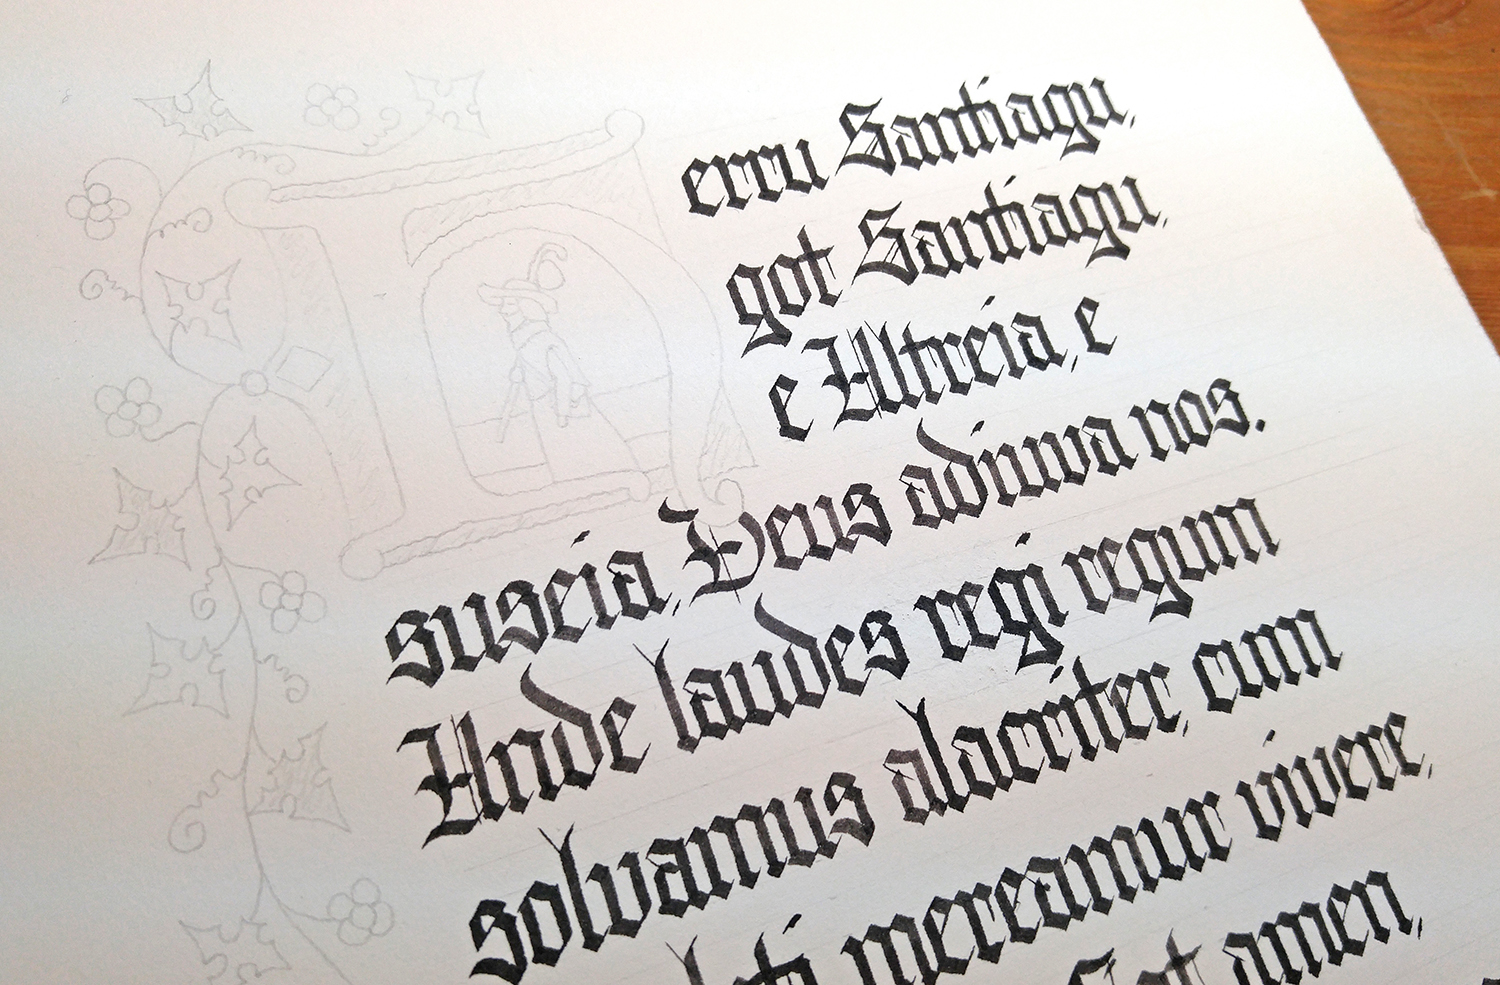 erru Santiagu,
got Santiagu,
e Ultreia, e
suseia, Deus adiuva nos.
Unde laudes regi regum
solvamus alacriter, cum
mereamur vivere,
Got amen,